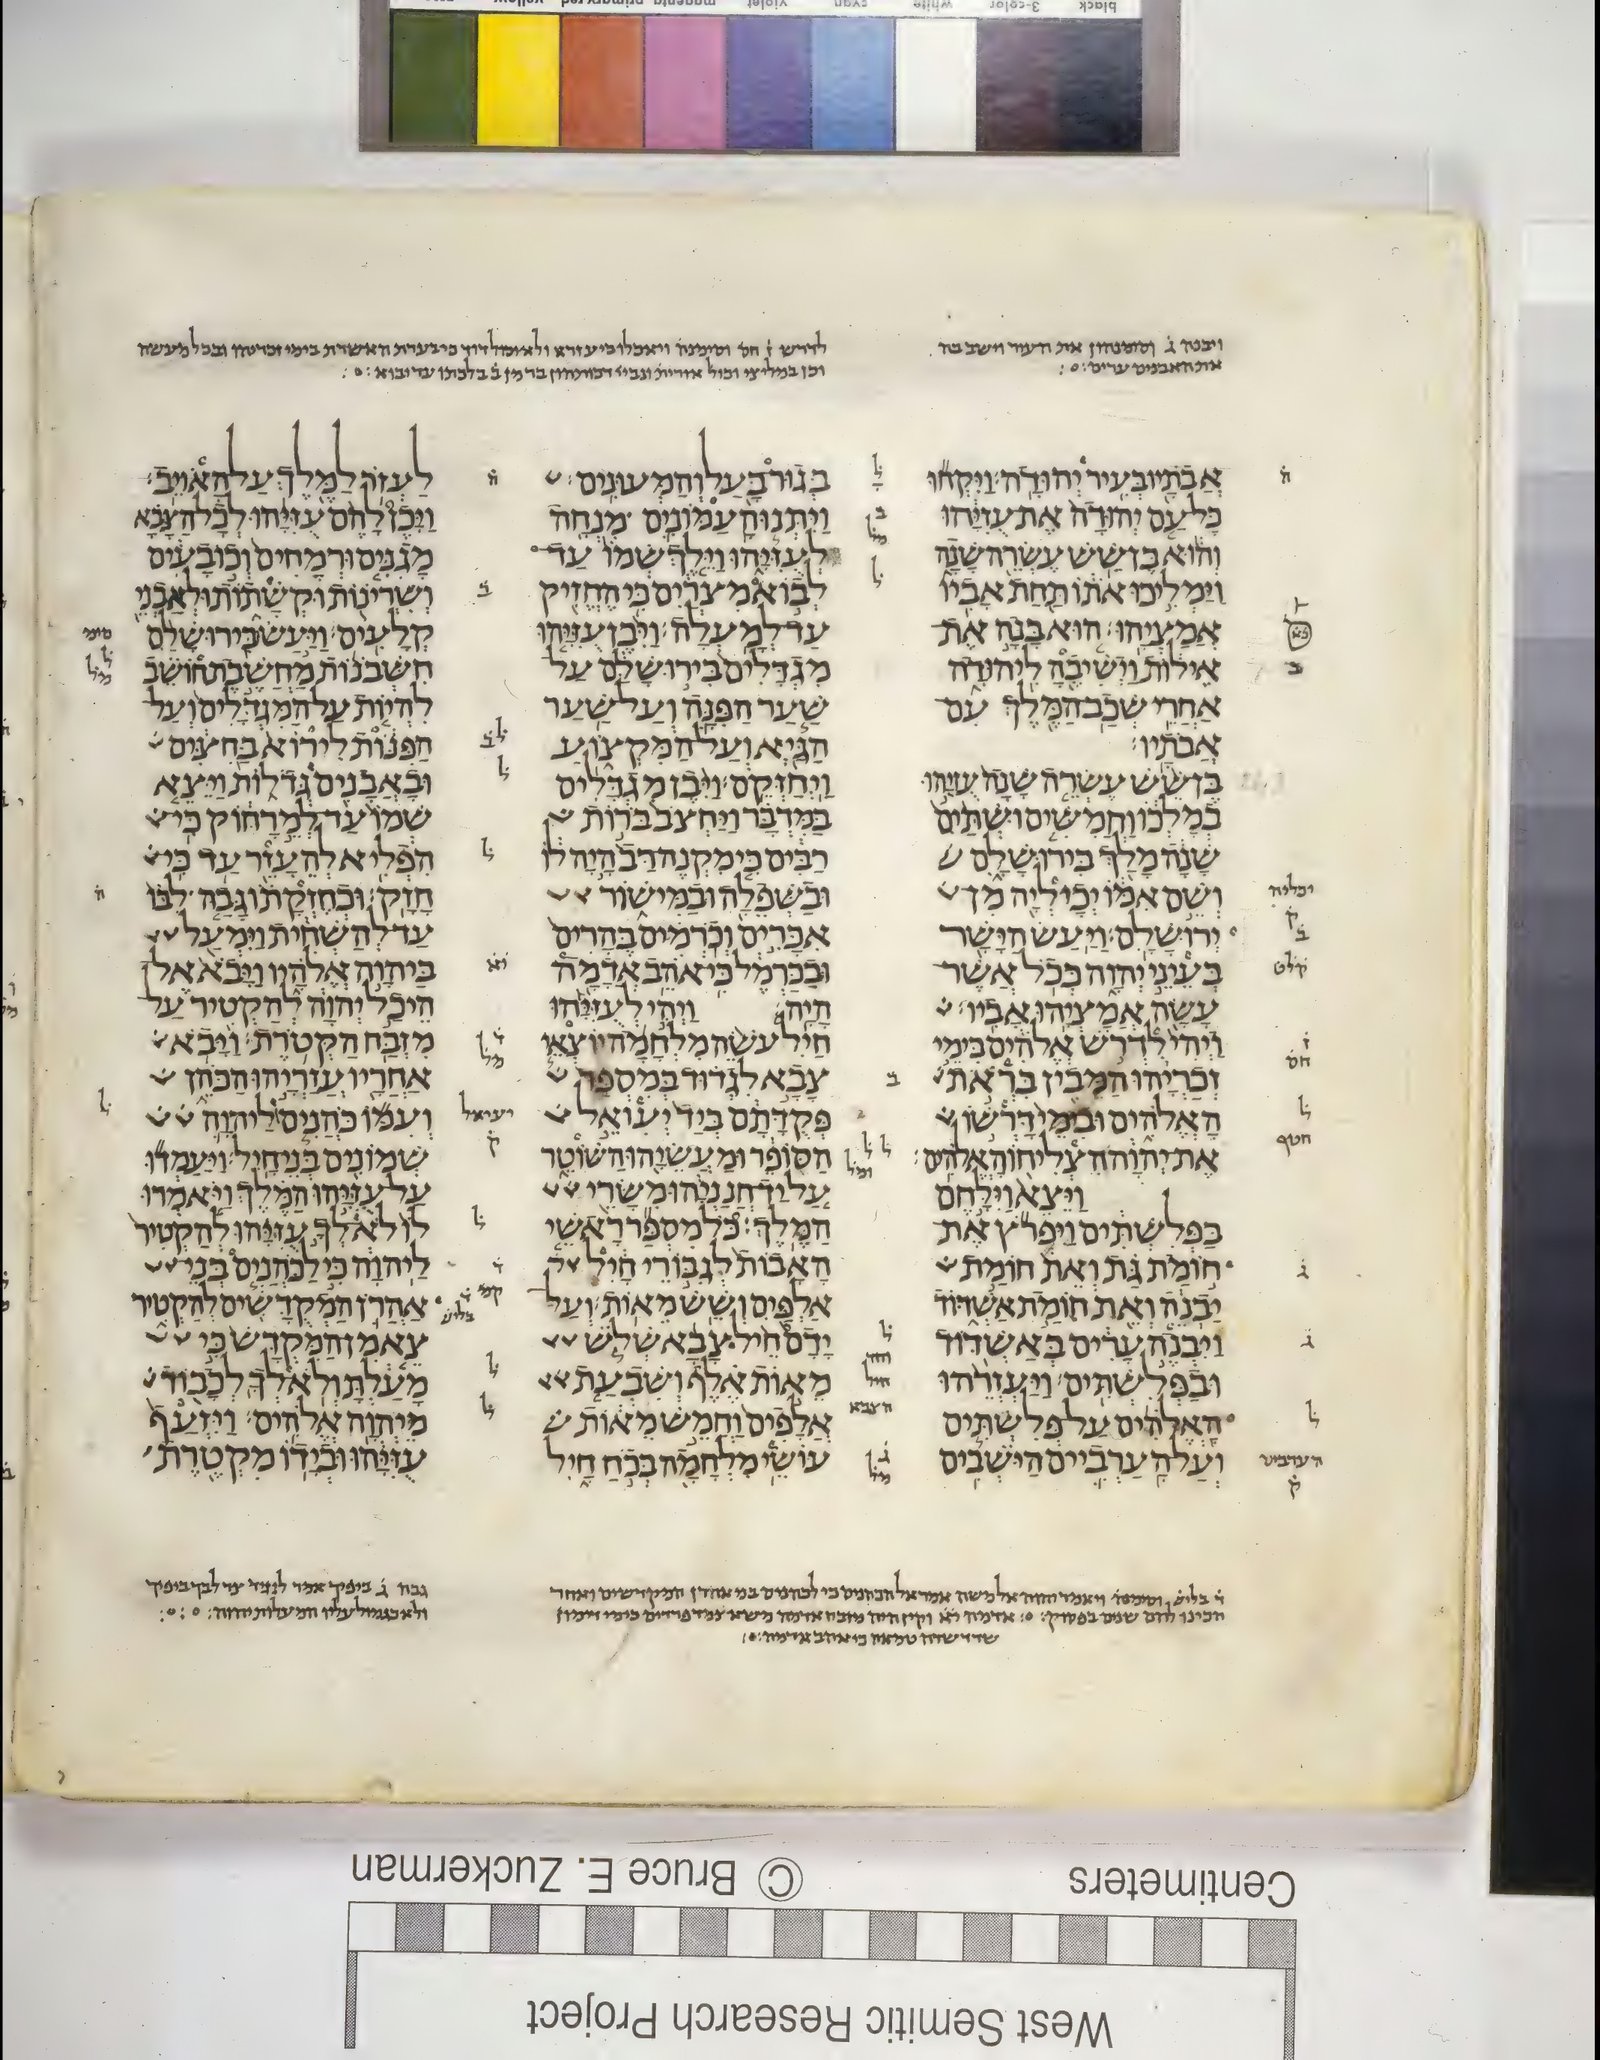 black 3-color white cyan violet magenta primary red yellow
ויבנה ג וסימנהון את העיר וישב בה
את האבנים ערים
אבתיו בעיר יהודה׃ ויקחו
כל עם יהודה את עזיהו
והוא בן שש עשרה שנה
וימליכו אתו תחת אביו
אמציהו׃ הוא בנה את
אילות וישיבה ליהודה
אחרי שכב המלך עם
אבתיו׃
בן שש עשרה שנה עזיהו
במלכו וחמשים ושתים
שנה מלך בירושלם
ושם אמו יכיליה מן
ירושלם׃ ויעש הישר
בעיני יהוה ככל אשר
עשה אמציהו אביו׃
ויהי לדרש אלהים בימי
זכריהו המבין בראת
האלהים ובימי דרשו
את יהוה הצליחו האלהים׃
ויצא וילחם
בפלשתים ויפרץ את
חומת גת ואת חומת
יבנה ואת חומת אשדוד
ויבנה ערים באשדוד
ובפלשתים׃ ויעזרהו
האלהים על פלשתים
ועל הערביים הישבים
בגור בעל והמעונים׃
ויתנו העמונים מנחה
לעזיהו וילך שמו עד
לבוא מצרים כי החזיק
עד למעלה׃ ויבן עזיהו
מגדלים בירושלם על
שער הפנה ועל שער
הגיא ועל המקצוע
ויחזקם׃ ויבן מגדלים
במדבר ויחצב ברות
רבים כי מקנה רב היה לו
ובשפלה ובמישור
אכרים וכרמים בהרים
ובכרמל כי אהב אדמה
היה׃ ויהי לעזיהו
חיל עשה מלחמה יוצאי
צבא לגדוד במספר
פקדתם ביד יעואל
הסופר ומעשיהו השוטר
על יד חנניהו משרי
המלך׃ כל מספר ראשי
האבות לגבורי חיל
אלפים ושש מאות׃ ועל
ידם חיל צבא שלש
מאות אלף ושבעת
אלפים וחמש מאות
עושי מלחמה בכח חיל
לעזר למלך על האויב׃
ויכן להם עזיהו לכל הצבא
מגנים ורמחים וכובעים
ושרינות וקשתות ולאבני
קלעים׃ ויעש בירושלם
חשבנות מחשבת חושב
להיות על המגדלים ועל
הפנות לירוא בחצים
ובאבנים גדלות ויצא
שמו עד למרחוק כי
הפליא להעזר עד כי
חזק׃ וכחזקתו גבה לבו
עד להשחית וימעל
ביהוה אלהיו ויבא אל
היכל יהוה להקטיר על
מזבח הקטרת׃ ויבא
אחריו עזריהו הכהן
ועמו כהנים ליהוה
שמונים בני חיל׃ ויעמדו
על עזיהו המלך ויאמרו
לו לא לך עזיהו להקטיר
ליהוה כי לכהנים בני
אהרן המקדשים להקטיר
צא מן המקדש כי
מעלת ולא לך לכבוד
מיהוה אלהים׃ ויזעף
עזיהו ובידו מקטרת
© Bruce E. Zuckerman
Centimeters
West Semitic Research Project